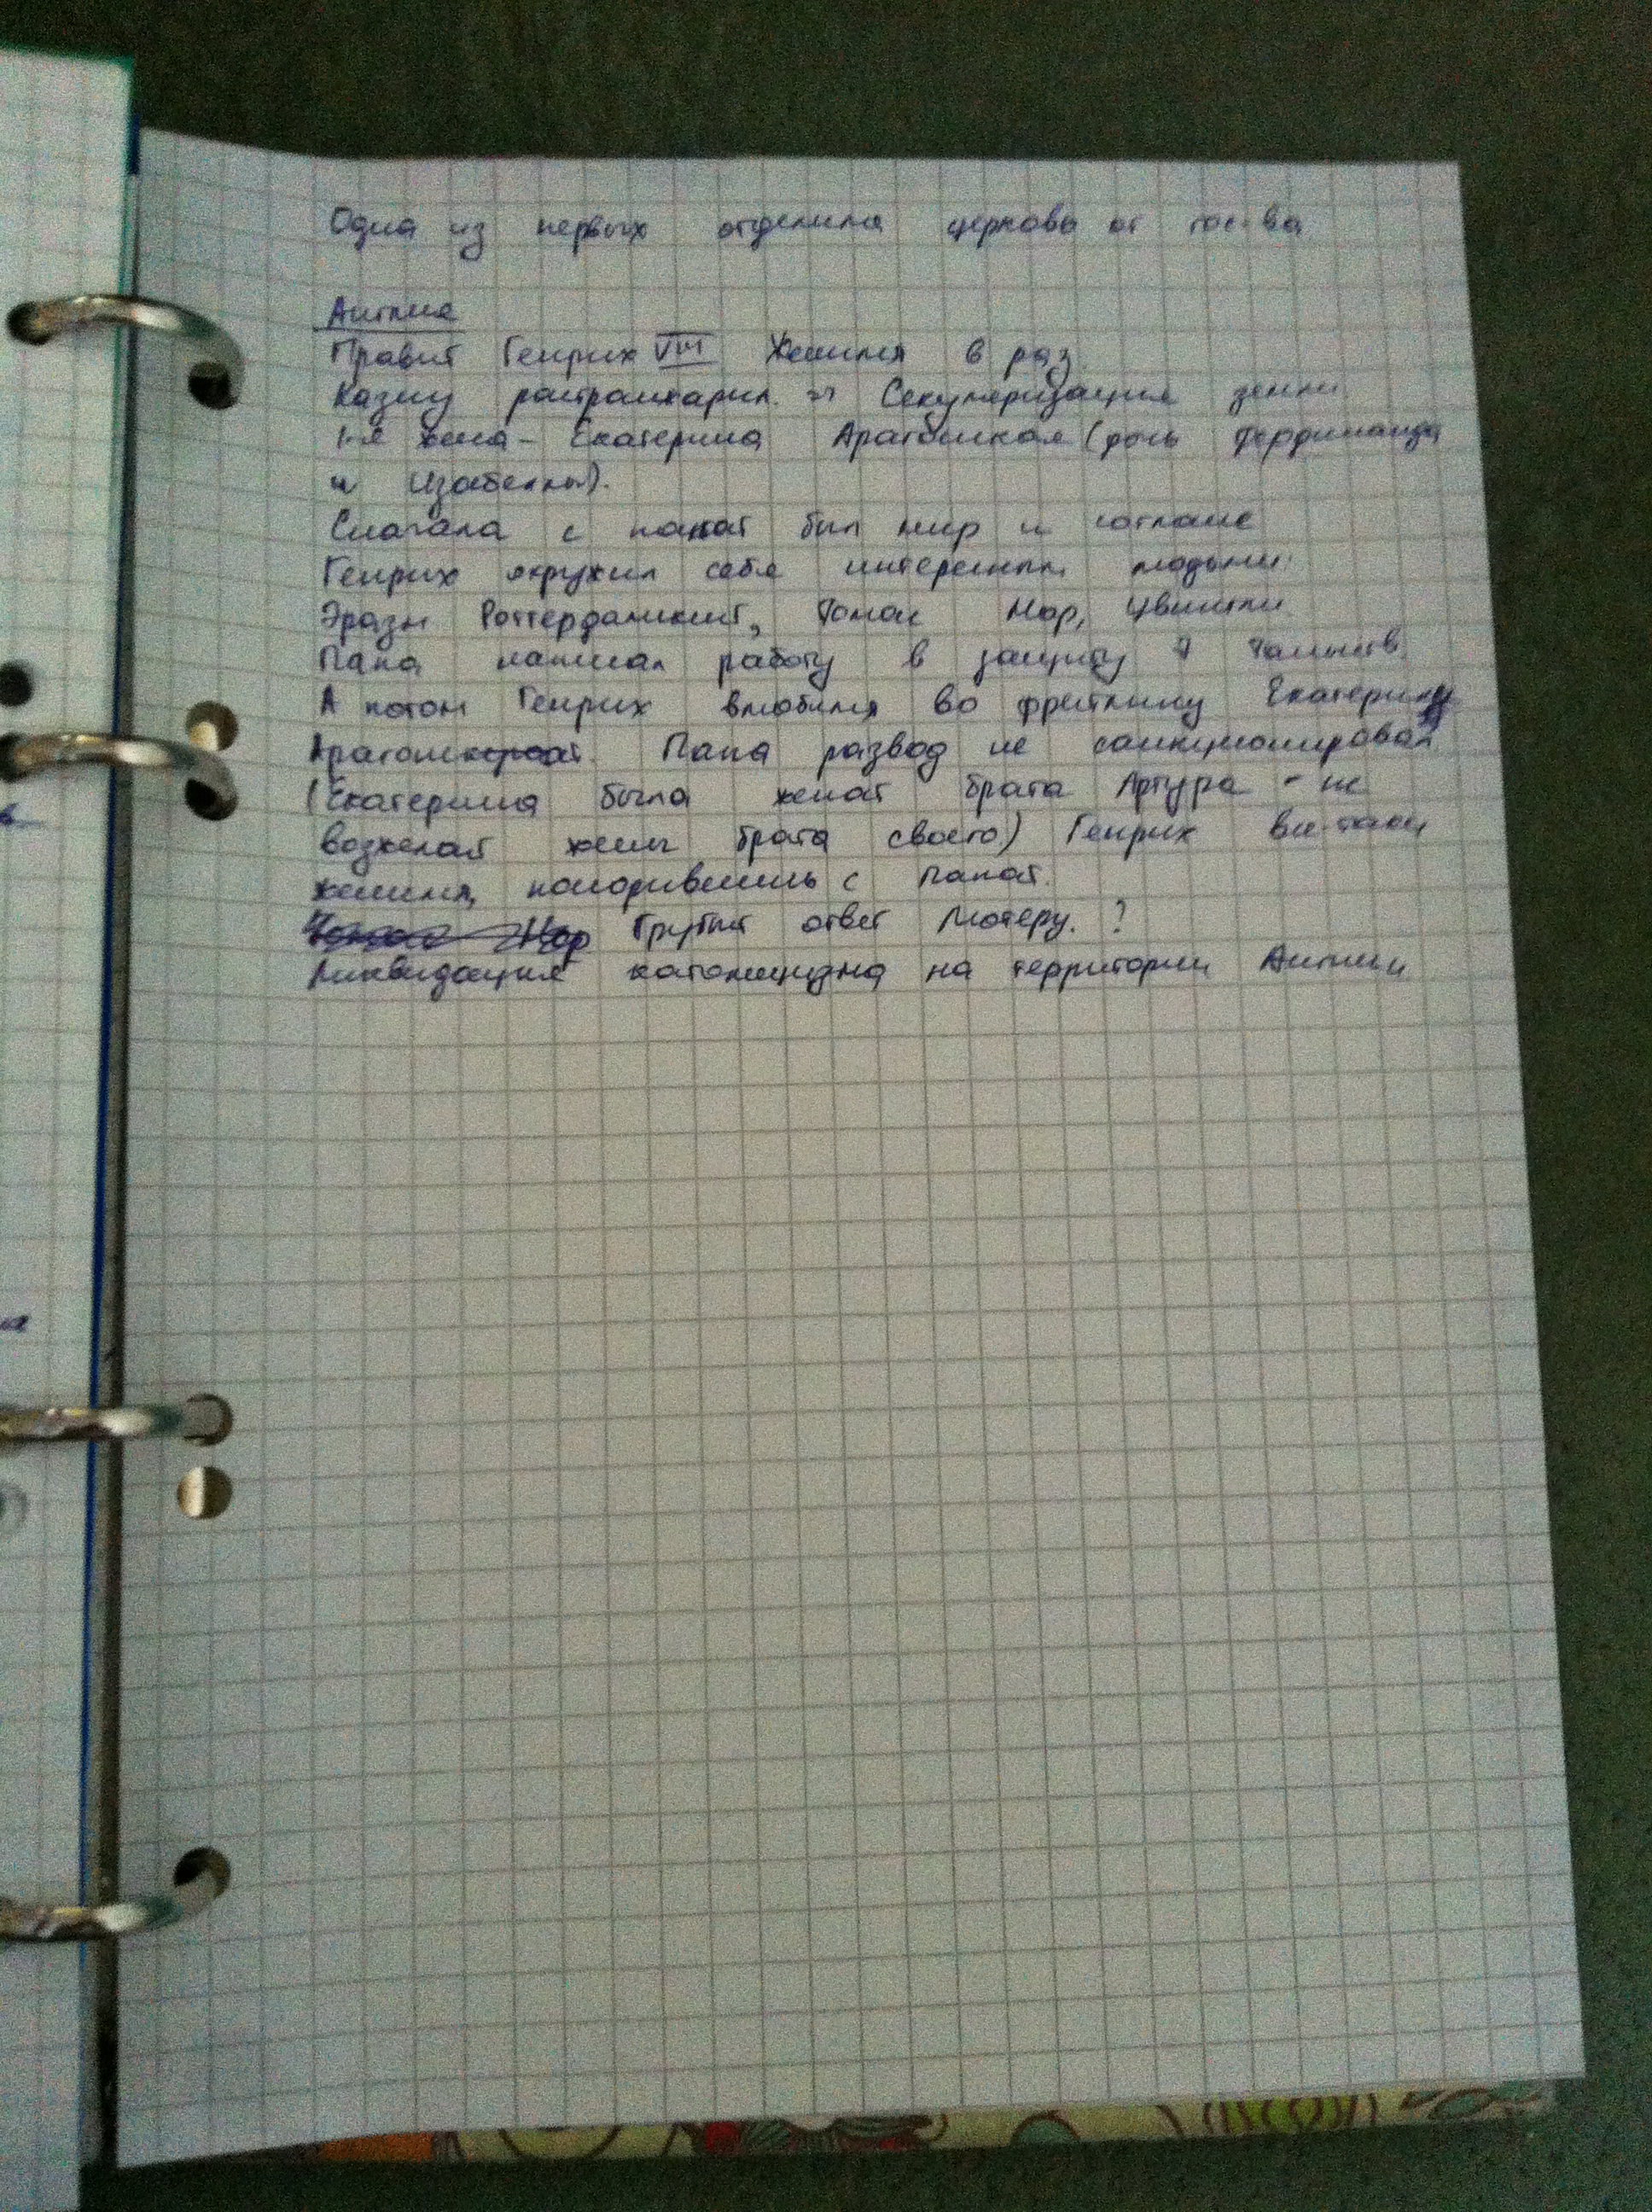 Одна из первых отделила церковь от гос-ва
Англия
Правит Генрих VIII Женился 6 раз
Казну растранжирил => Секуляризация земли
1-я жена - Екатерина Арагонская (дочь Фердинанда
и Изабеллы).
Сначала с папой был мир и согласие
Генрих окружил себя интересными людьми:
Эразм Роттердамский, Томас Мор, Цвингли
Папа написал работу в защиту 7 таинств.
А потом Генрих влюбился во фрейлину Екатерины
Арагонской. Папа развод не санкционировал
(Екатерина была женой брата Артура - не
возжелай жены брата своего) Генрих все-таки
женился, поссорившись с Папой.
Томас Мор Грубый ответ Лютеру. ?
Ликвидация католицизма на территории Англии